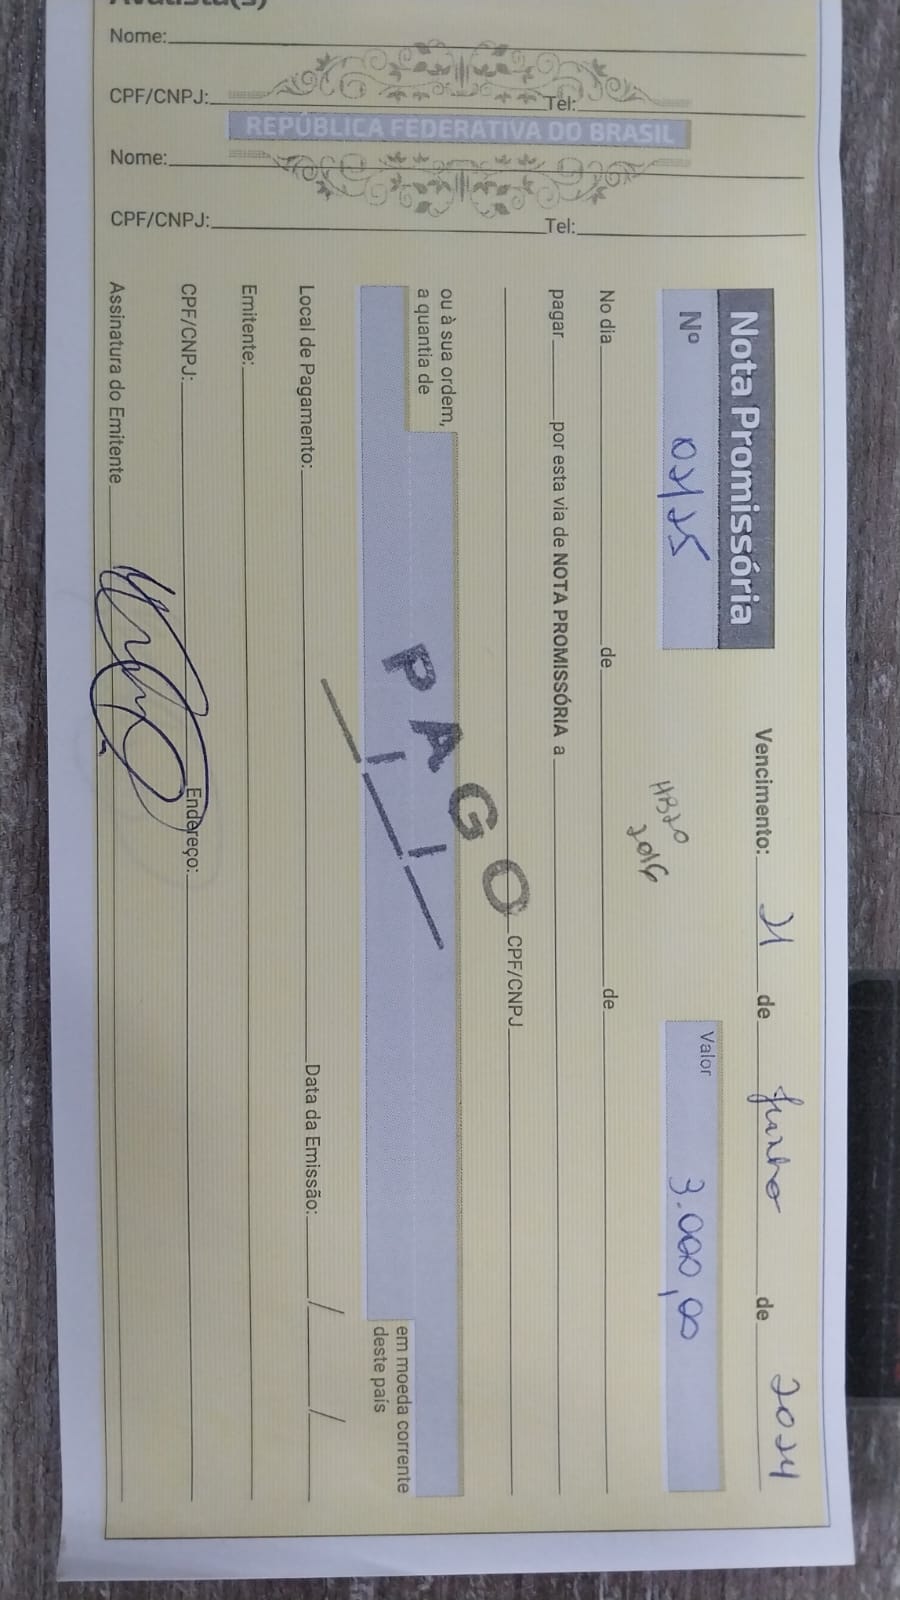 Avalista(s)
Nome:
CPF/CNPJ: Tel:
REPÚBLICA FEDERATIVA DO BRASIL
Nome:
CPF/CNPJ: Tel:
Nota Promissória
Vencimento: 21 de Junho de 2024
Nº 02/25
HB20
2016
Valor 3.000,00
No dia de de
pagar por esta via de NOTA PROMISSÓRIA a
CPF/CNPJ
ou à sua ordem,
a quantia de
PAGO
em moeda corrente
deste país
Local de Pagamento: Data da Emissão: / /
Emitente:
CPF/CNPJ: Endereço:
Assinatura do Emitente